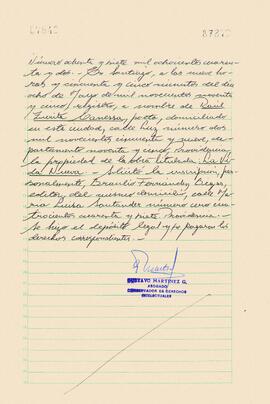 87842
Número ochenta y siete mil ochocientos cuaren-
ta y dos.- En Santiago, a las nueve ho-
ras y cincuenta y cinco minutos del día
ocho de Mayo de mil novecientos noventa
y cinco, registro, a nombre de Raúl
Zurita Canessa, poeta, domiciliado
en esta ciudad, calle número dos
mil novecientos cincuenta y nueve, de-
partamento noventa y cinco, Providencia,
la propiedad de la obra titulada: La Vi-
da Nueva.- Solicitó la inscripción, per-
sonalmente, Braulio Fernández Biggs,
editor, del mismo domicilio, calle Ma-
ría Luisa Santander número cero cua-
trocientos cuarenta y siete, Providencia.-
Se hizo el depósito legal y se pagaron los
derechos correspondientes.-
GUSTAVO MARTINEZ G.
ABOGADO
CONSERVADOR DE DERECHOS
INTELECTUALES